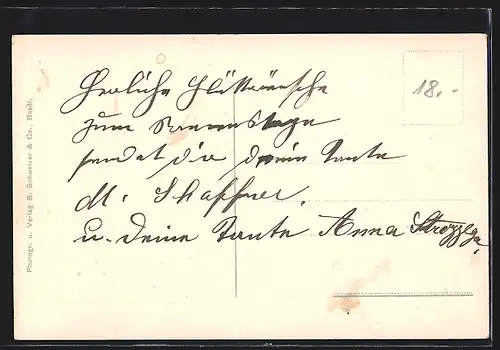 Herzliche Glückwünsche
zum Namenstage
sendet dir deine Tante
M. Schaffner.
u. deine Tante Anna
18.-
Photogr. u. Verlag B. Schweizer & Co., Basel.